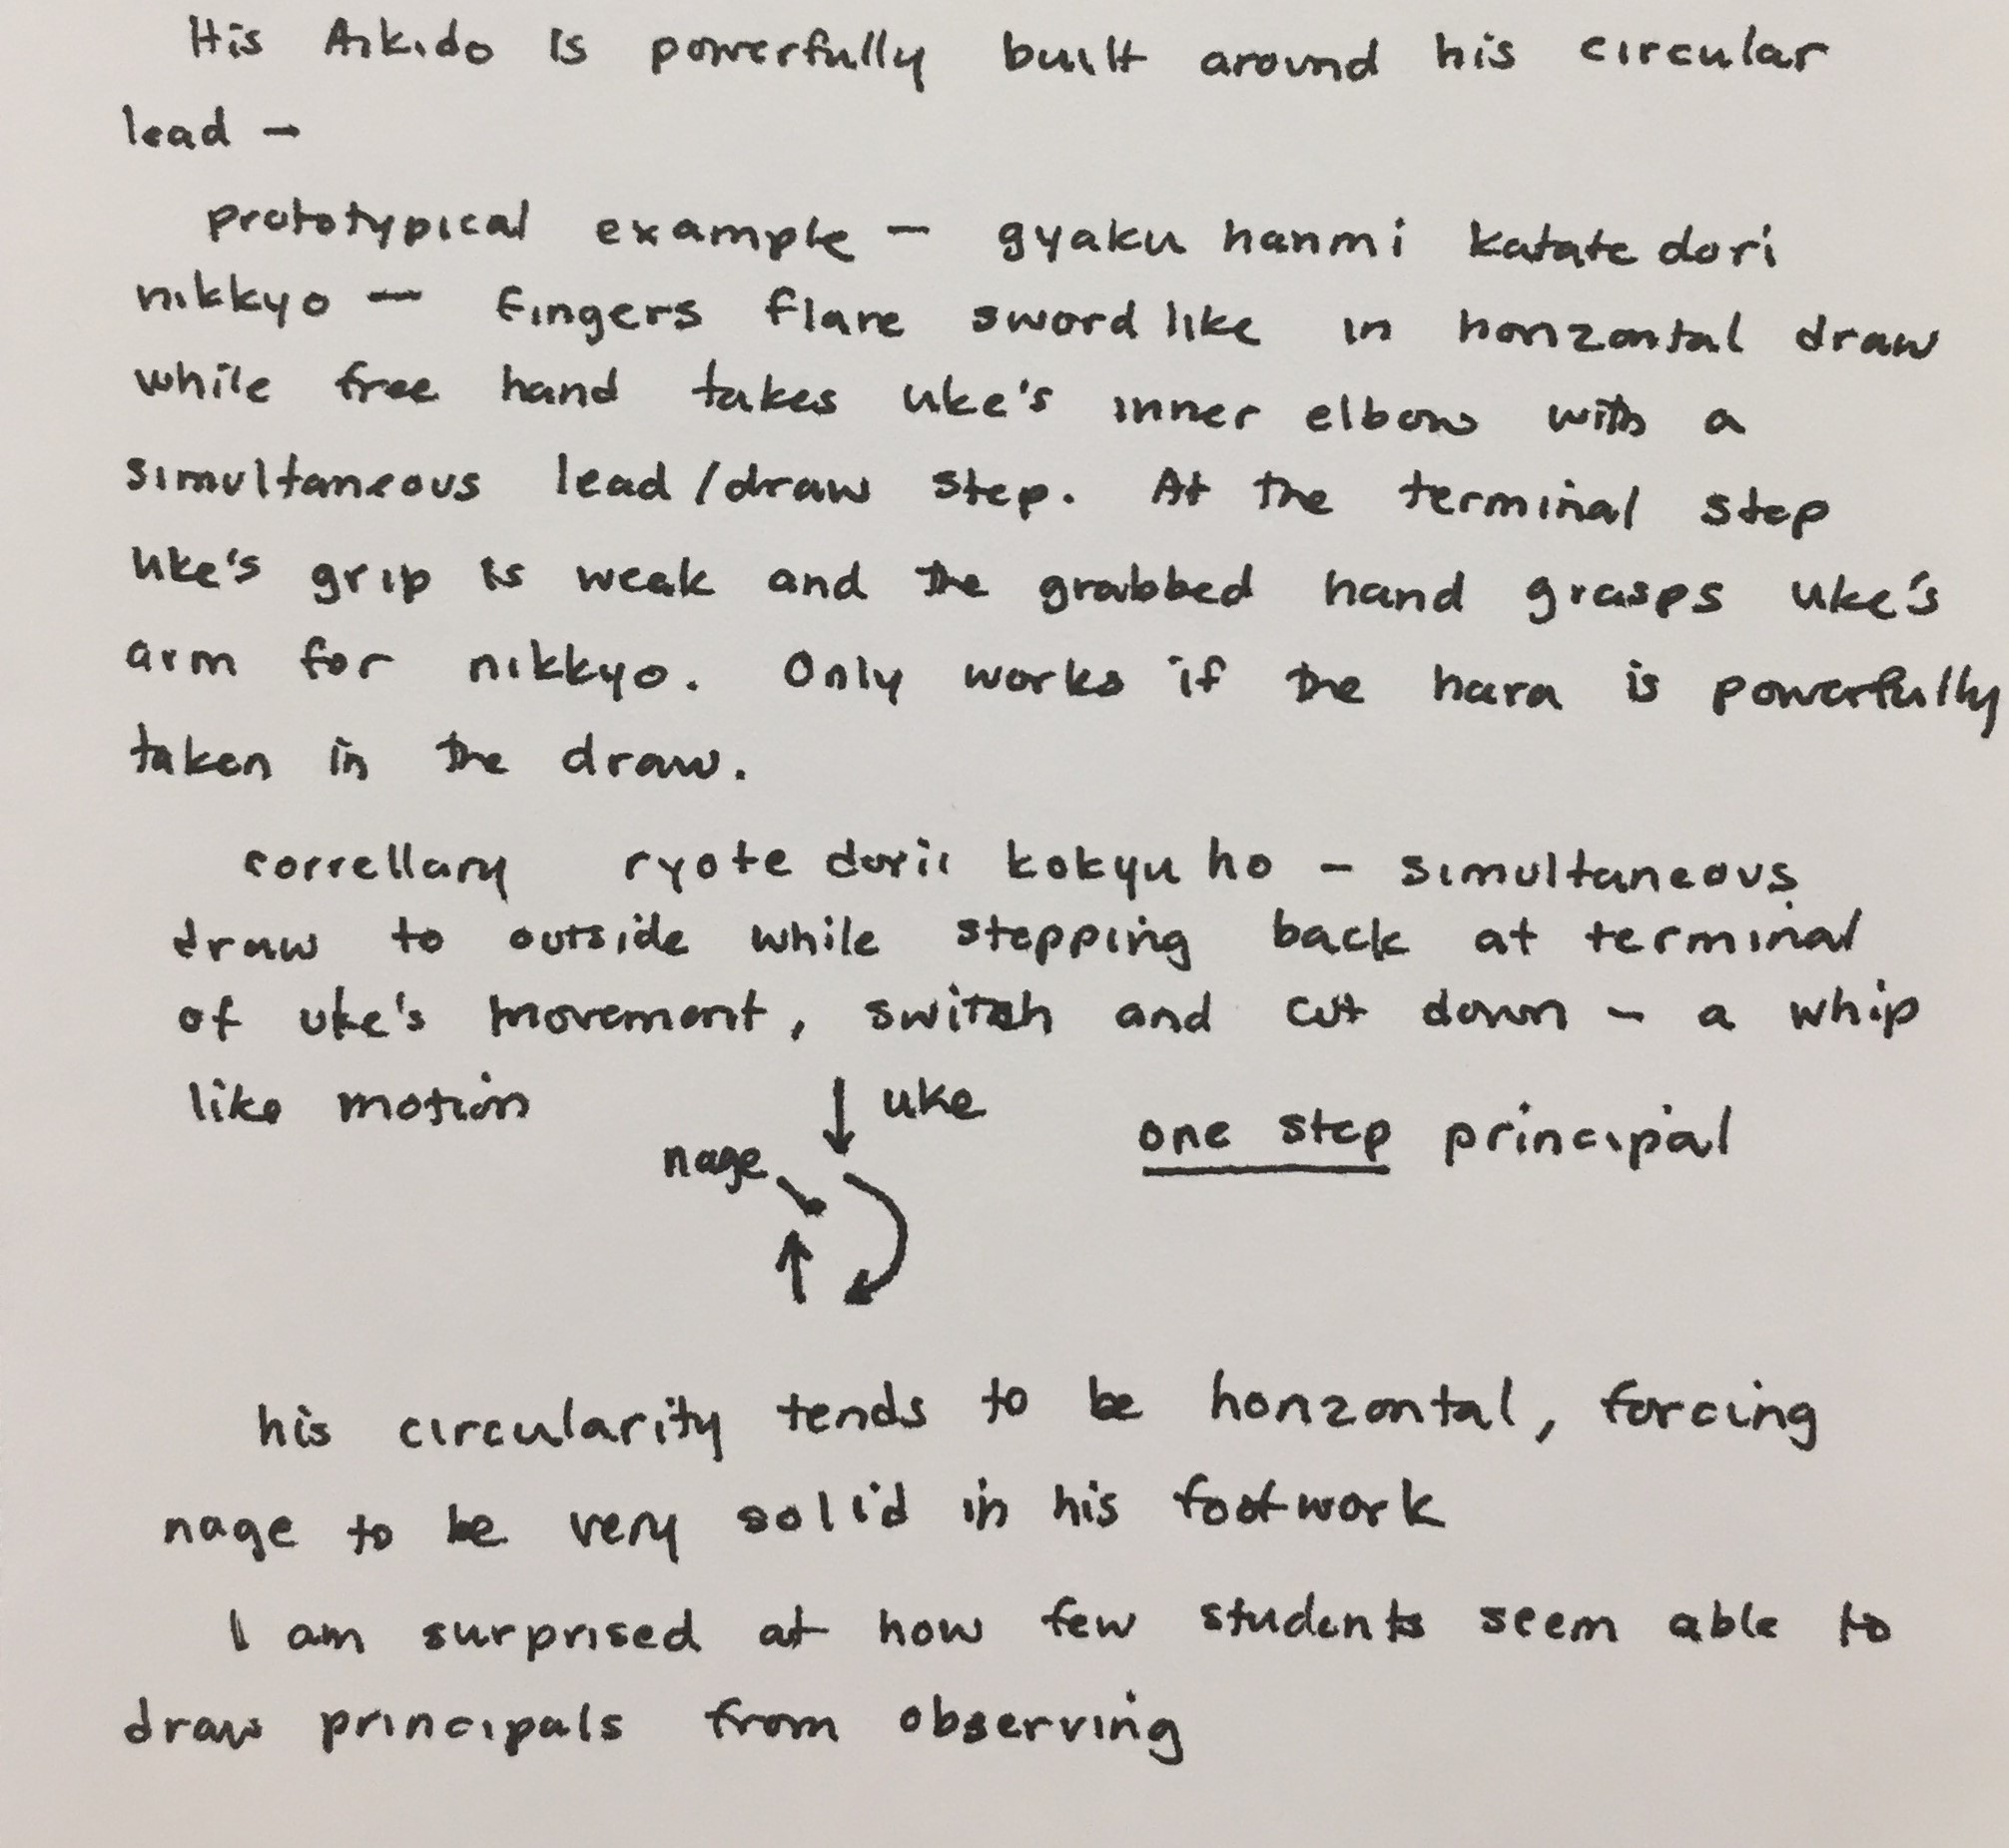 His Aikido is powerfully built around his circular
lead —
prototypical example — gyaku hanmi katate dori
nikkyo — fingers flare sword like in horizontal draw
while free hand takes uke's inner elbow with a
simultaneous lead/draw step. At the terminal step
uke's grip is weak and the grabbed hand grasps uke's
arm for nikkyo. Only works if the hara is powerfully
taken in the draw.
correllary ryote dori kokyu ho - simultaneous
draw to outside while stepping back at terminal
of uke's movement, switch and cut down - a whip
like motion
uke
nage
one step principal
his circularity tends to be horizontal, forcing
nage to be very solid in his footwork
I am surprised at how few students seem able to
draw principals from observing